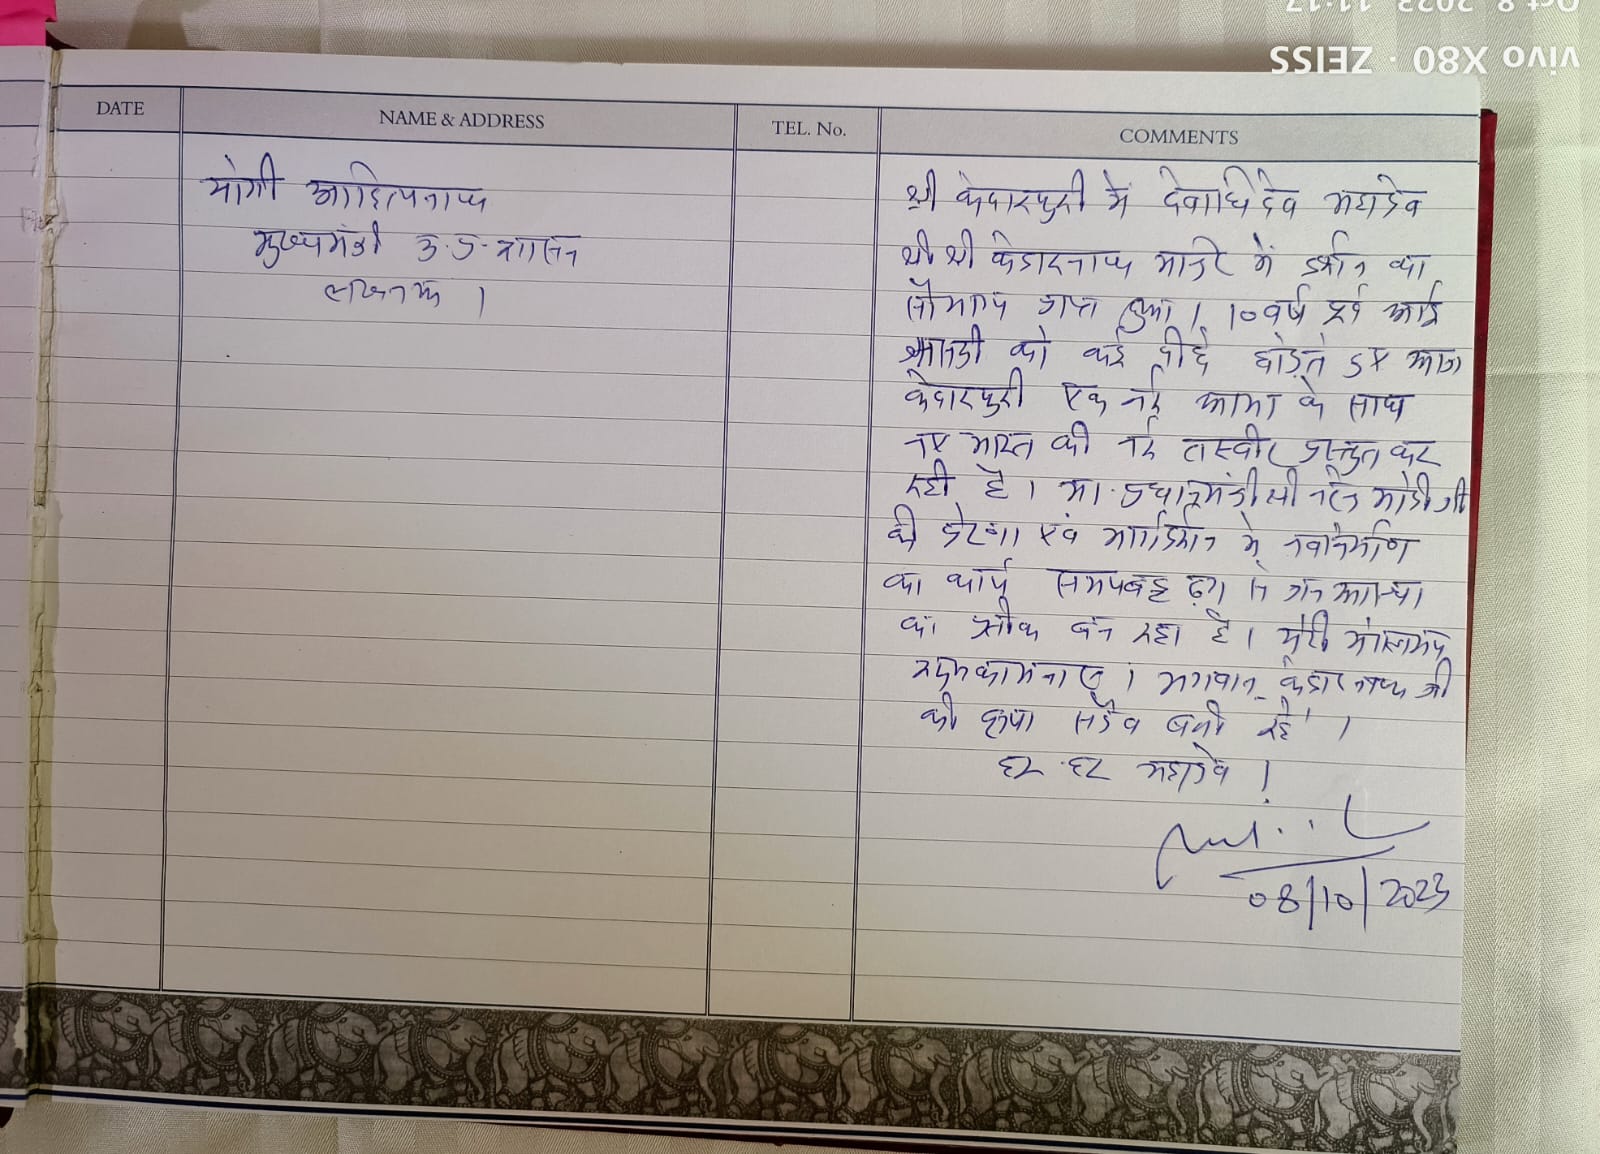 Oct 8, 2023, 11:17
vivo X80 · ZEISS
DATE
NAME & ADDRESS
TEL. No.
COMMENTS
योगी आदित्यनाथ
मुख्यमंत्री उ.प्र. शासन
लखनऊ ।
श्री केदारपुरी में देवाधिदेव महादेव
श्री श्री केदारनाथ मन्दिर में दर्शन का
सौभाग्य प्राप्त हुआ । 10 वर्ष पूर्व आई
त्रासदी को कई पीछे छोड़ते हुए आज
केदारपुरी एक नई आभा के साथ
नए भारत की नई तस्वीर प्रस्तुत कर
रही है । मा. प्रधानमंत्री श्री नरेन्द्र मोदी जी
की प्रेरणा एवं मार्गदर्शन में नवनिर्माण
का कार्य समयबद्ध ढंग से जन आस्था
का प्रतीक बन रहा है । मेरी मंगलमय
शुभकामनाएं । भगवान केदारनाथ जी
की कृपा सदैव बनी रहे ।
हर हर महादेव !
08/10/2023